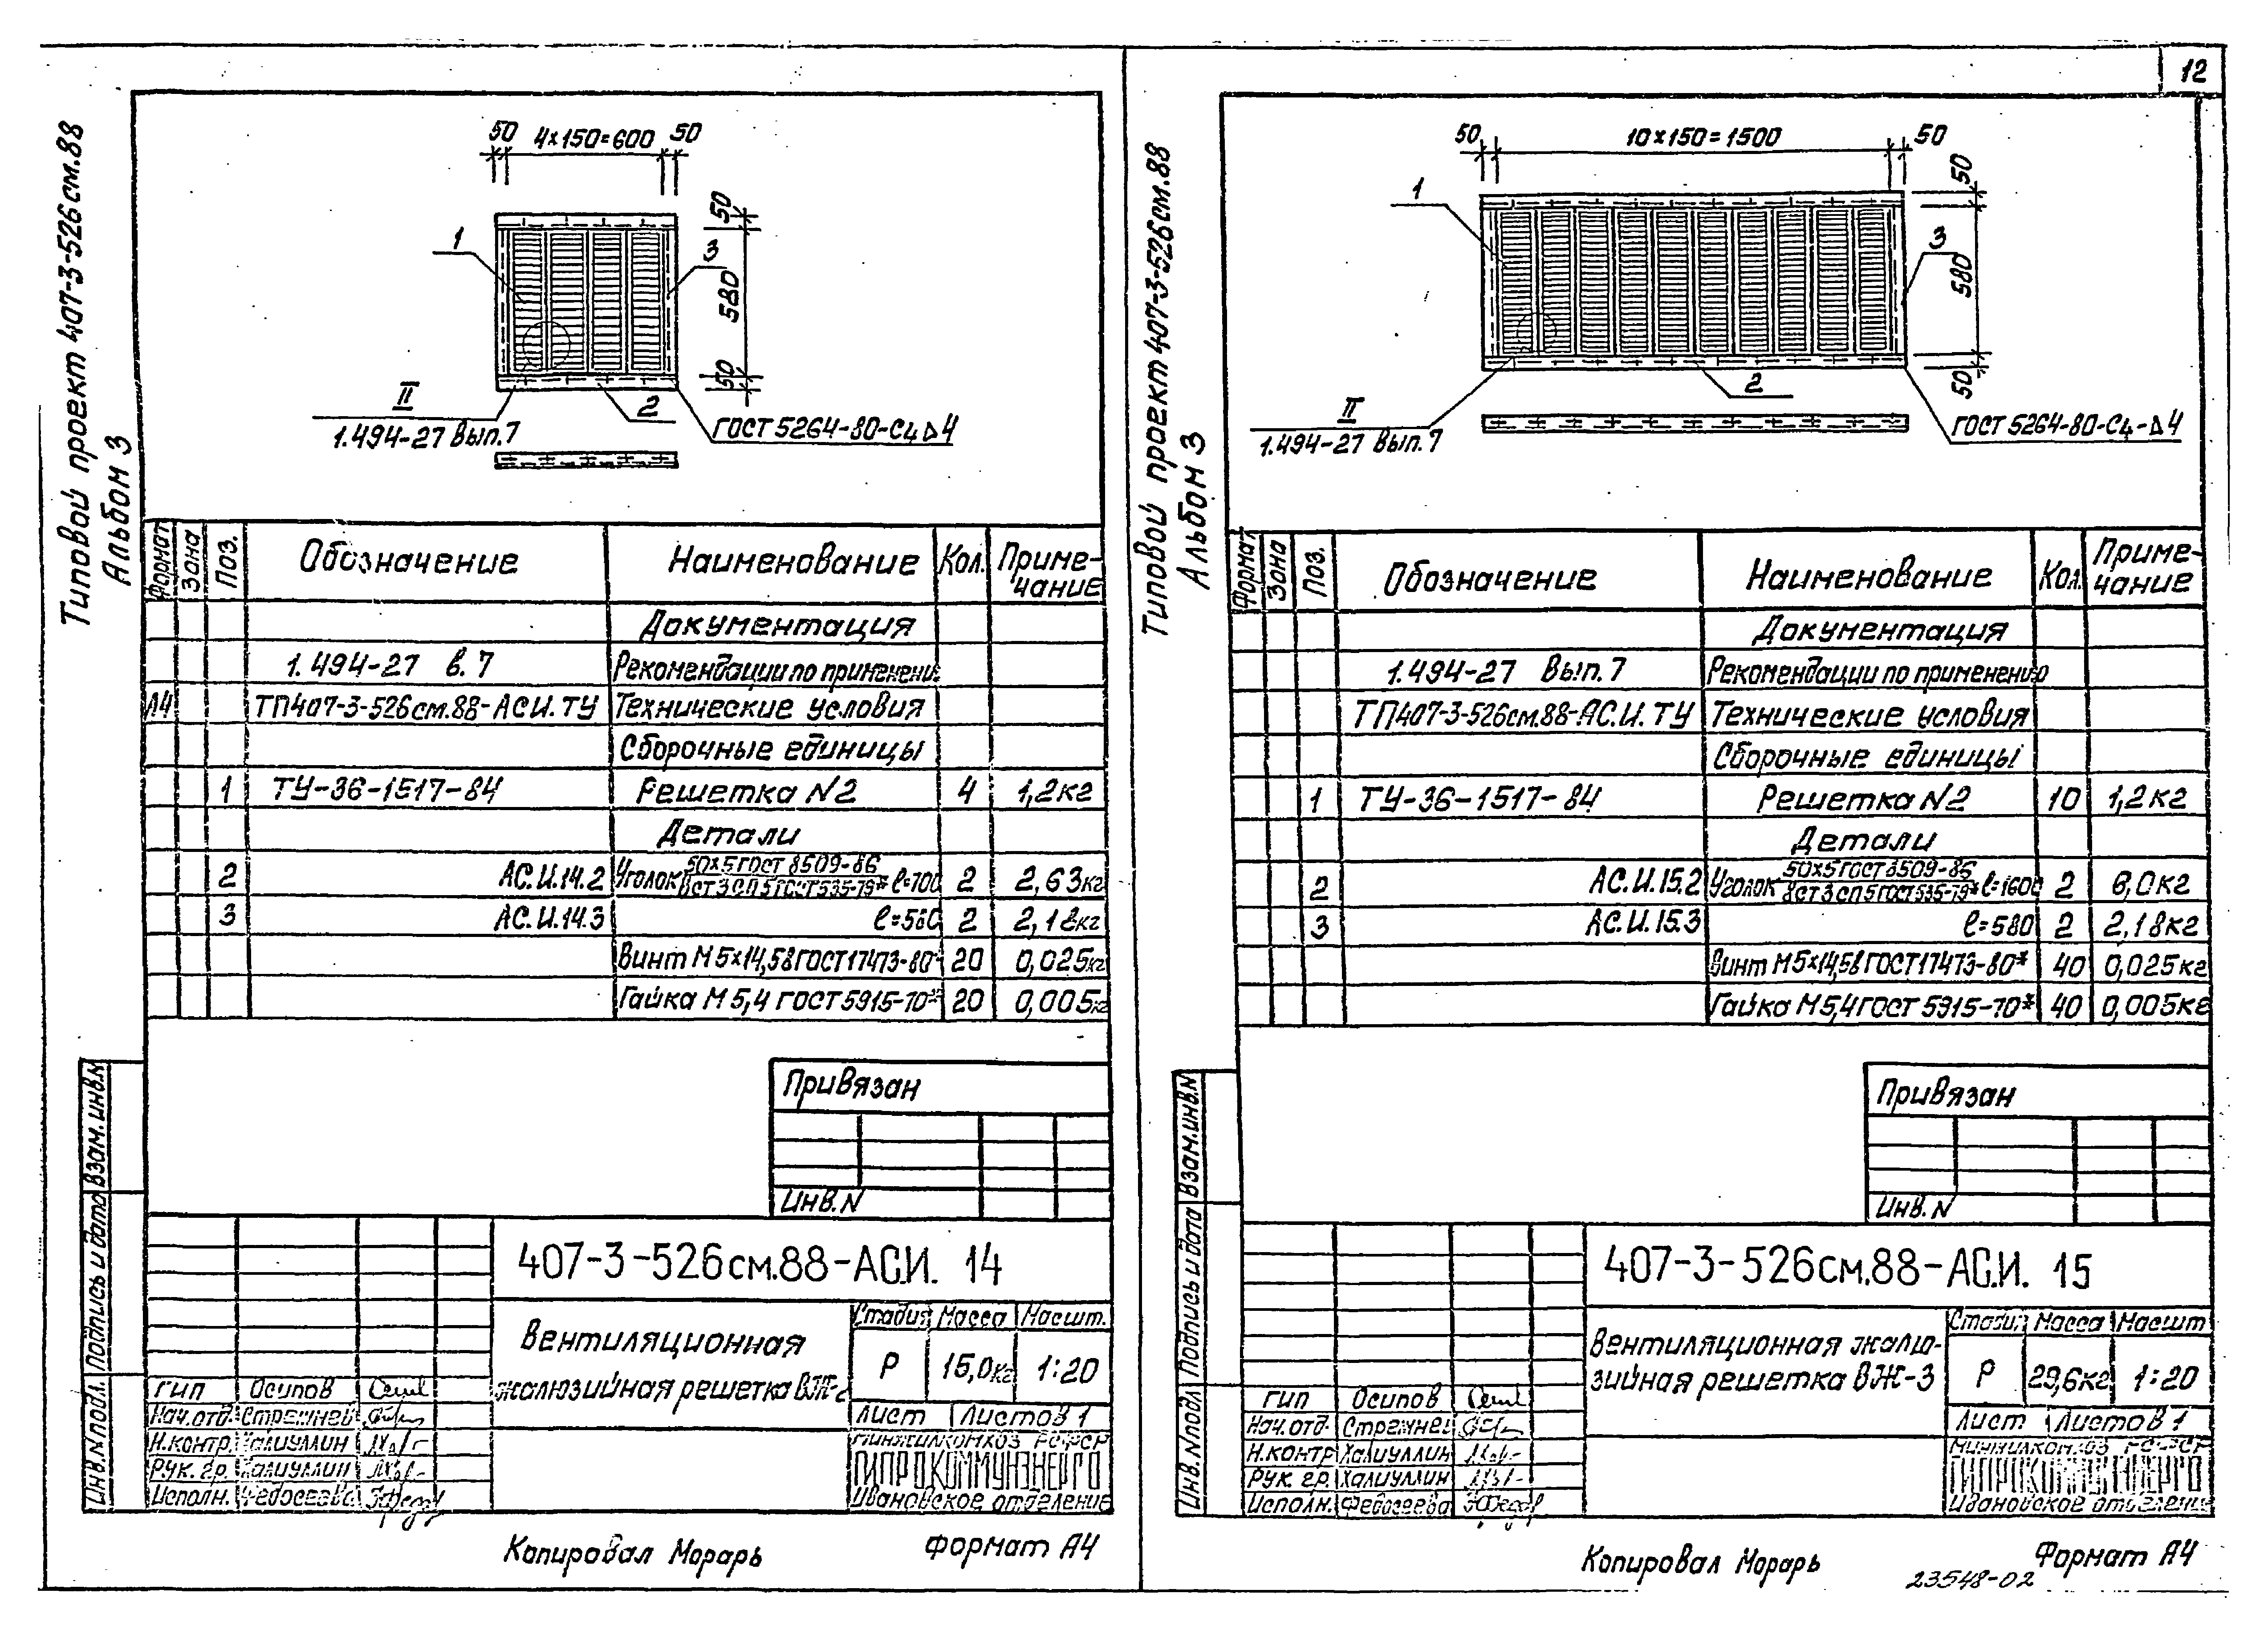 12
Типовой проект 407-3-526см.88
Альбом 3
50 4×150=600 50
50
580
50
1
3
2
II
1.494-27 Вып.7
ГОСТ 5264-80-С4 Δ4
Формат Зона Поз. Обозначение Наименование Кол. Приме-
чание
Документация
1.494-27 в.7 Рекомендации по применени
А4 ТП407-3-526см.88-АС.И.ТУ Технические условия
Сборочные единицы
1 ТУ-36-1517-84 Решетка N2 4 1,2кг
Детали
2 АС.И.14.2 Уголок 50×5 ГОСТ 8509-86 / ВСТ3СП5 ГОСТ535-79* ℓ=700 2 2,63кг
3 АС.И.14.3 ℓ=580 2 2,18кг
Винт М5×14,58 ГОСТ17473-80* 20 0,025кг
Гайка М5,4 ГОСТ 5915-70* 20 0,005кг
Привязан
Инв.N
Взам.инв.N
Подпись и дата
Инв.N подл.
407-3-526см.88-АС.И. 14
Вентиляционная
жалюзийная решетка ВЖ-2
Стадия Масса Масшт.
Р 15,0кг 1:20
Лист Листов 1
Минжилкомхоз РСФСР
ГИПРОКОММУНЭНЕРГО
Ивановское отделение
ГИП Осипов
Нач.отд. Стрежнев
Н.контр. Халиуллин
Рук. гр. Халиуллин
Исполн. Федосеева
Копировал Морарь Формат А4
Типовой проект 407-3-526см.88
Альбом 3
50 10×150=1500 50
50
580
50
1
3
2
II
1.494-27 Вып.7
ГОСТ 5264-80-С4-Δ4
Формат Зона Поз. Обозначение Наименование Кол. Приме-
чание
Документация
1.494-27 Вып.7 Рекомендации по применению
ТП407-3-526см.88-АС.И.ТУ Технические условия
Сборочные единицы
1 ТУ-36-1517-84 Решетка N2 10 1,2кг
Детали
2 АС.И.15.2 Уголок 50×5 ГОСТ 8509-86 / ВСТ3СП5 ГОСТ535-79* ℓ=1600 2 6,0кг
3 АС.И.15.3 ℓ=580 2 2,18кг
Винт М5×14,58 ГОСТ17473-80* 40 0,025кг
Гайка М5,4 ГОСТ 5915-70* 40 0,005кг
Привязан
Инв.N
Взам.инв.N
Подпись и дата
Инв.N подл.
407-3-526см.88-АС.И. 15
Вентиляционная жалю-
зийная решетка ВЖ-3
Стадия Масса Масшт
Р 29,6кг 1:20
Лист Листов 1
Минжилкомхоз РСФСР
ГИПРОКОММУНЭНЕРГО
Ивановское отделение
ГИП Осипов
Нач.отд. Стрежнев
Н.контр Халиуллин
Рук. гр. Халиуллин
Исполн. Федосеева
Копировал Морарь Формат А4
23548-02